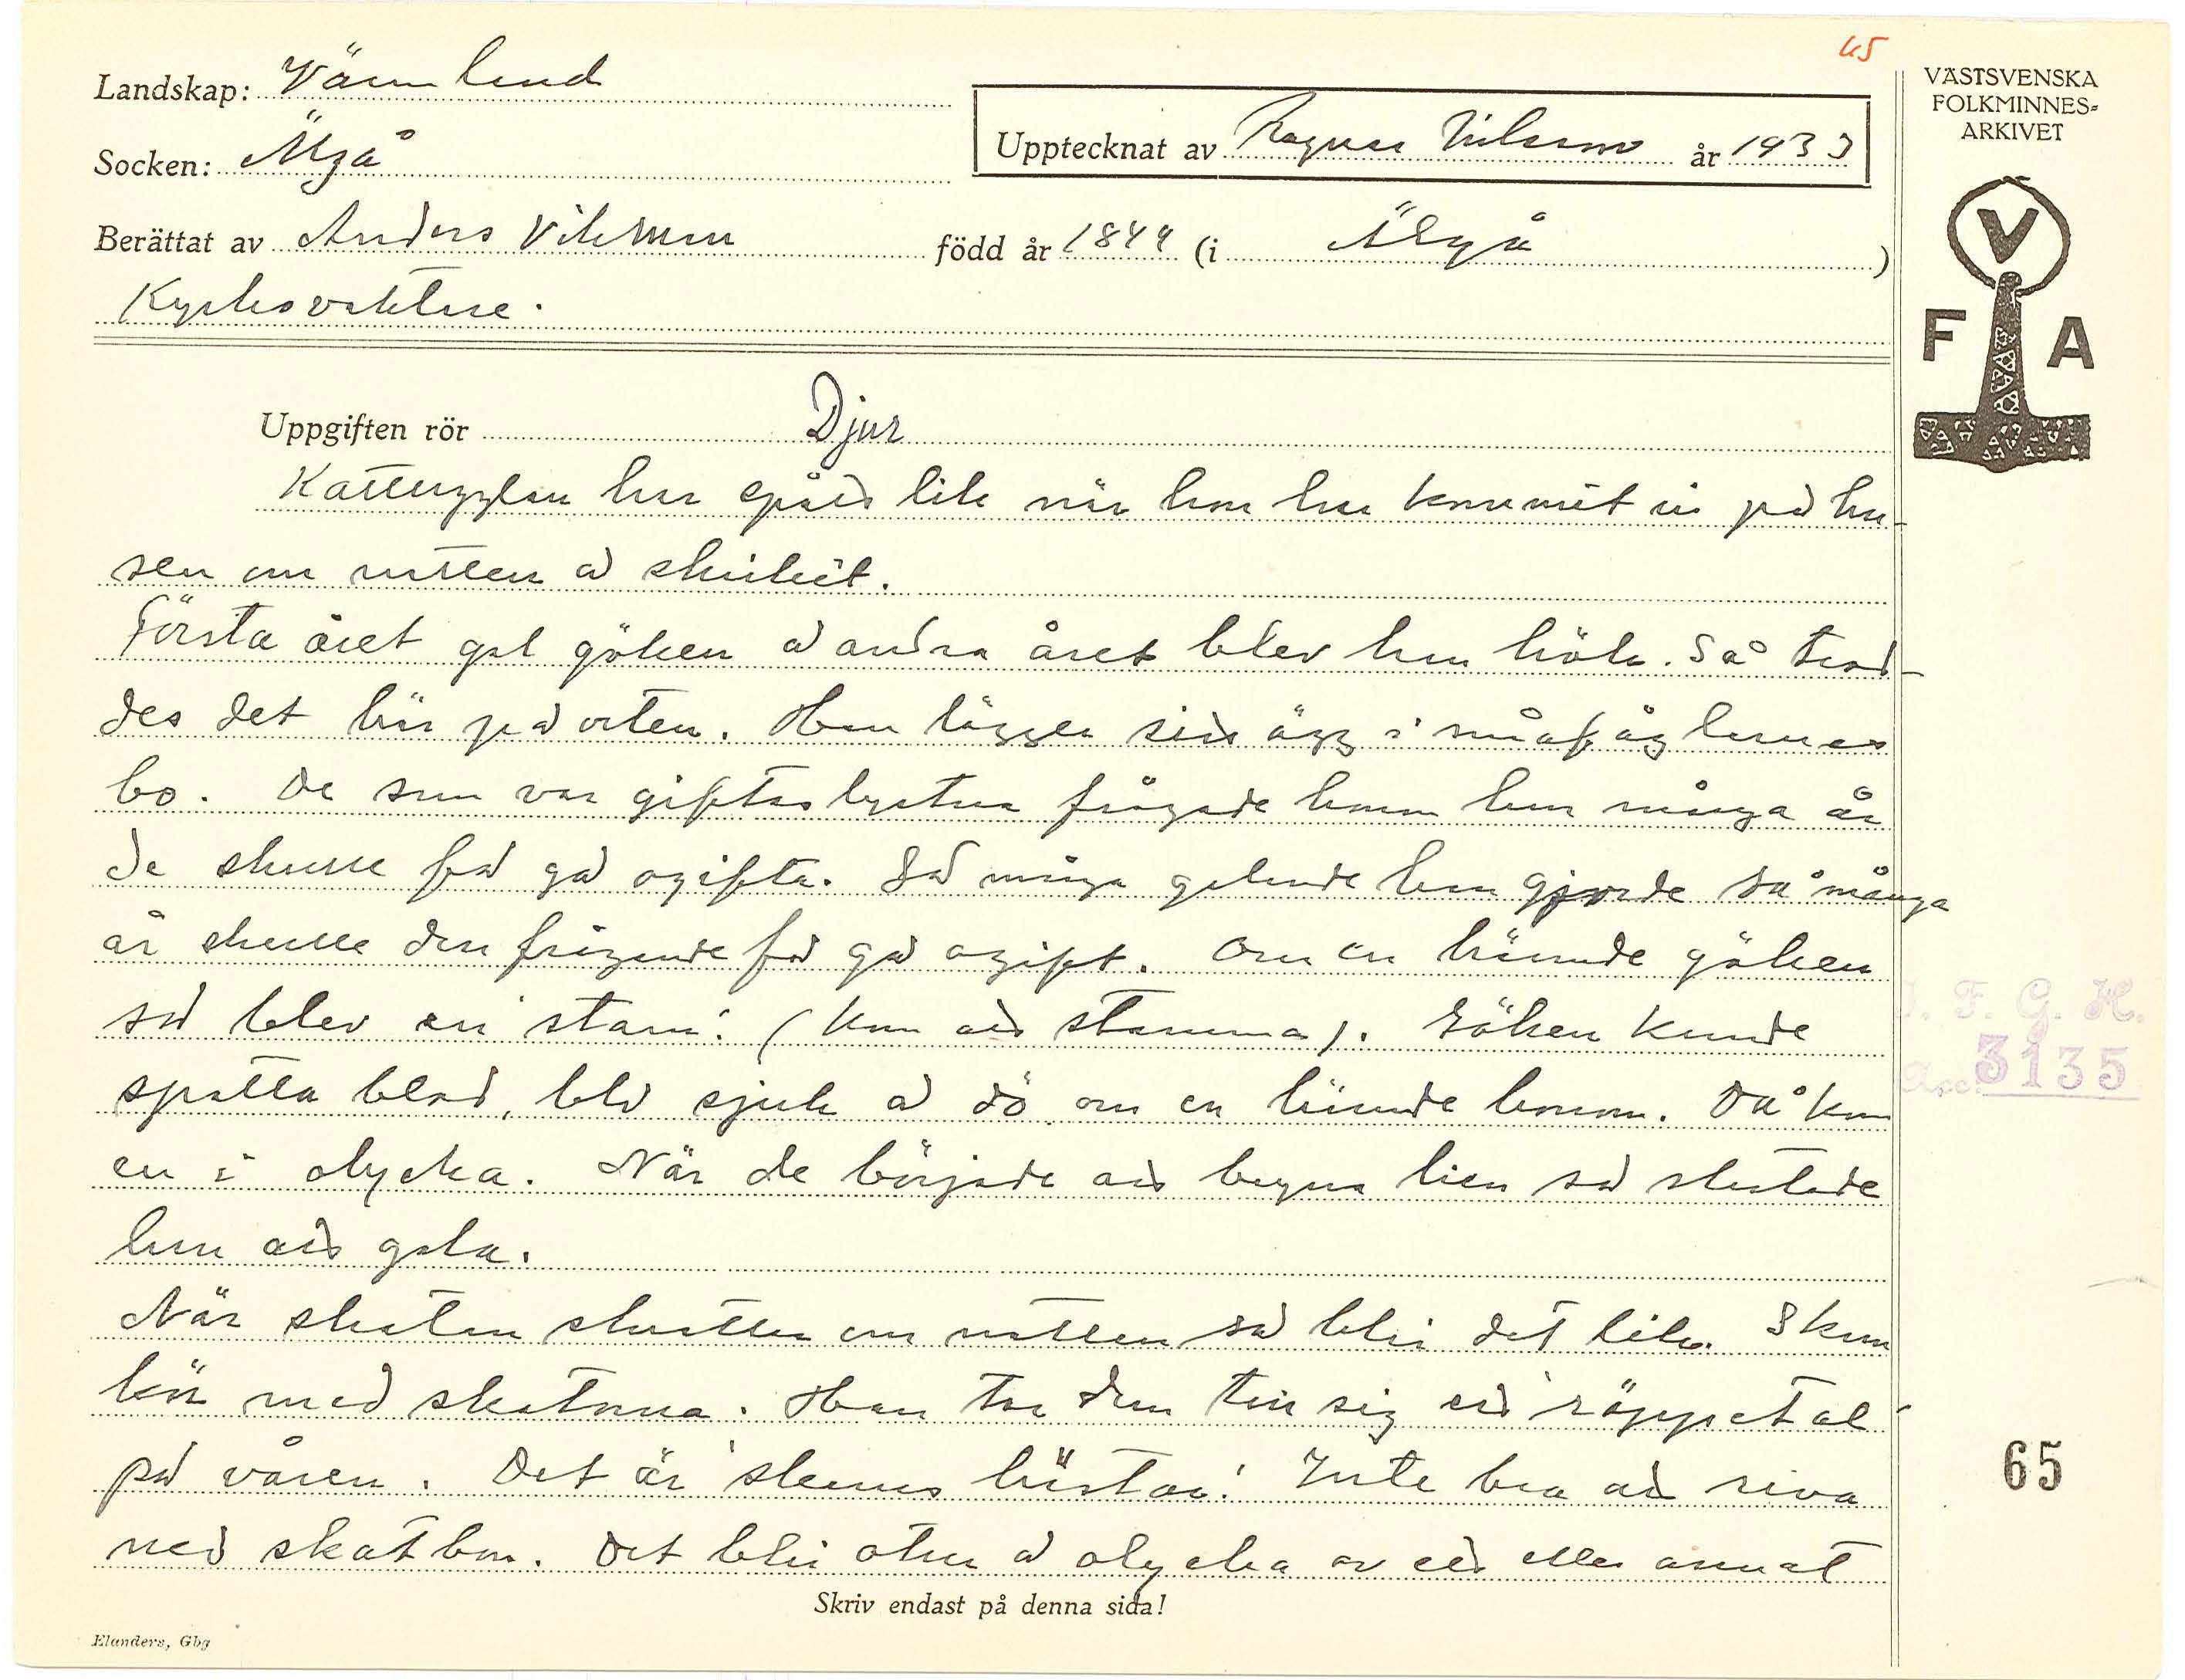 65
Landskap: Värmland
Socken: Älgå
Upptecknat av Ragnar Nilsson år 1933
Berättat av Anders Vilsson född år 1844 (i Älgå)
Kyrkovaktare.
VÄSTSVENSKA
FOLKMINNES=
ARKIVET
V
F A
Uppgiften rör Djur
Kattugglan har spått lik när hon har kommit in på hu-
sen om natten å skrikit.
Första året gal göken å andra året blev han hök. Så trod-
des det här på orten. Han lägger sina ägg i småfåglarnas
bo. De som var giftaslystna frågade honom hur många år
de skulle få gå ogifta. Så många galande han gjorde så många
år skulle den frågande få gå ogift. Om en härmde göken
så blev en 'stam'. (kom att stamma). Göken kunde
spotta blod, ble sjuk å dö om en härmde honom. Då kom
en i olycka. När de började att bryna lien så slutade
han att gala.
När skatan skrattar om natten så blir det lik. Skam
hör med skatorna. Han tar dem till sig ett 'röppetal'
på våren. Det är 'skams hästar'. Inte bra att riva
ned skatbon. Det blir otur å olycka av ett eller annat
Skriv endast på denna sida!
Elanders, Gbg
I. F. G. H.
Acc. 3135
65